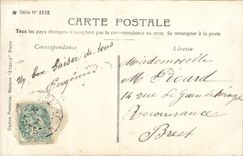 Série N° 1112
CARTE POSTALE
Tous les pays étrangers n'acceptent pas la correspondance au recto. Se renseigner à la poste
Correspondance
Adresse
Un bon baiser de tous
Eugénie
Mademoiselle
M. Picard
Recouvrance
Brest